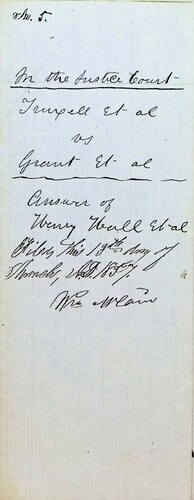 No. 5.
In the Justice Court
Truxell Et al
vs
Grant Et al
Answer of
Henry Wall Et al
Filed this 19th day of
March, AD 1857
Wm McCain